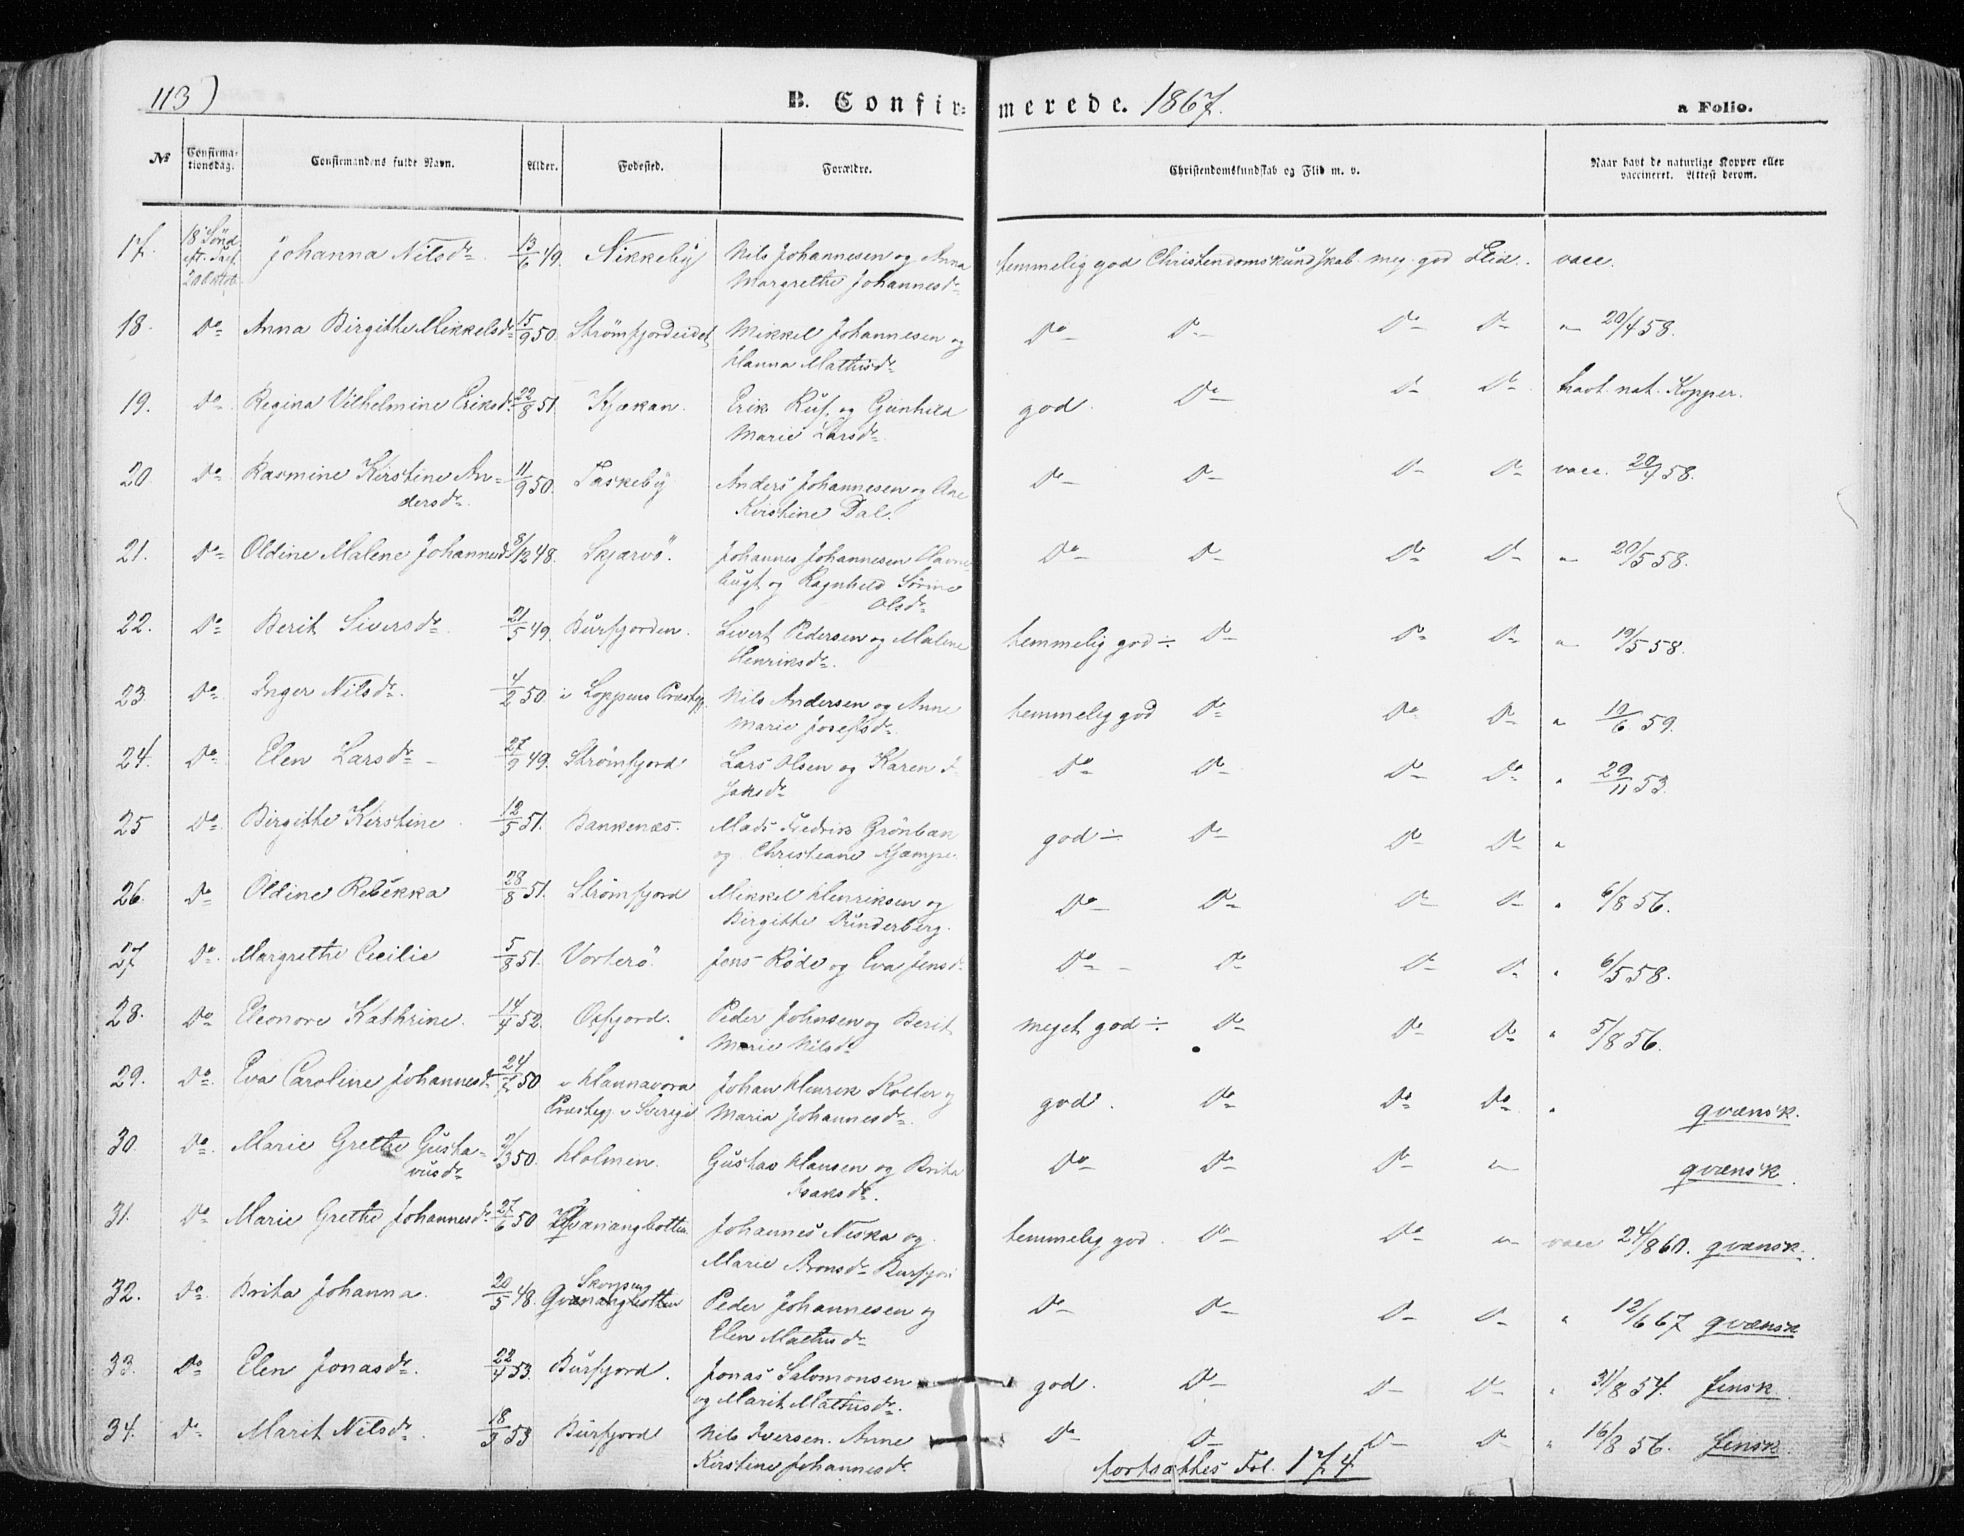 113)
B. Confirmerede. 1867.
a Folio.
№ Confirmationsdag. Confirmandens fulde Navn. Alder. Fødested. Forældre. Christendomskundskab og Flid m. v. Naar havt de naturlige Kopper eller vaccineret. Attest derom.
17. 18 Sønd. Johanna Nilsdr. 13/6 49. Nikkeby Nils Johannesen og Anna temmelig god Christendomskundskab meg. god Flid. vacc.
Margrethe Johannesdr.
18. Do Anna Birgithe Mikkelsdr. 15/9 50. Strømfjordeidet Mikkel Johannesen og Do Do Do Do " 20/4 58.
Hanna Mathisdr.
19. Do Regina Vilhelmine Eriksdr. 22/8 51. Kjækan. Erik Ruf. og Gunhild god. Do Do Do havt nat. Kopper.
Marie Larsdr.
20. Do Rasmine Kirstine An- 11/9 50. Taskeby Anders Johannesen og Ane Do Do Do Do vacc. 20/ 58.
dersdr. Kirstine Dal.
21. Do Oldine Malene Johannesdr. 8/12 48. Skjærvö. Johannes Johannesen Havne- Do Do Do Do " 20/5 58.
bugt og Ragnhild Sørine
Olsdr.
22. Do Berit Siversdr. 21/5 49. Burfjorden. Sivert Pedersen og Malene temmelig god ÷ Do Do Do " 19/5 58.
Henriksdr.
23. Do Inger Nilsdr. 4/2 50. i Loppens Præstegj. Nils Andersen og Anne temmelig god Do Do Do " 19/6 59.
Marie Josefsdr.
24. Do Elen Larsdr. 27/9 49. Strømfjord Lars Olsen og Karen Do Do Do Do " 29/11 53.
25 Do Birgithe Kirstine 12/5 51. Bankenæs. Mads Fredrik Grönban god ÷ Do Do Do "
og Christiane Kjæmpe.
26. Do Oldine Rebekka 28/8 51. Strømfjord Mikkel Henriksen og Do Do Do Do " 6/8 56.
Birgithe Dunderberg.
27 Do Margrethe Cecilie 5/8 51. Vorterö Jens Röde og Eva Jensdr. Do Do Do Do " 6/5 58.
28. Do Eleonore Kathrine. 14/4 52. Oxfjord. Peder Johnsen og Berit meget god ÷ Do Do Do " 5/8 56.
Marie Nilsdr.
29. Do Eva Caroline Johannesdr. 24/7 50 i Hannavora Johan Henrik Kolter og god. Do Do Do " qvænsk.
Præstegj. i Sverige Maria Johannesdr.
30. Do Marie Grethe Gusta- 2/3 50. Holmen. Gustav Hansen og Brita Do Do Do " qvænsk.
vusdr. Isaksdr.
31. Do Marie Grethe Johannesdr. 27/6 50 Qvænangbotten Johannes Niska og temmelig god. Do Do " vacc 24/8 60. qvænsk.
Marie Aronsdr. Burfjord
32. Do Brita Johanna. 20/5 48. Skorpen Qvænangbotten Peder Johannesen og Do Do Do Do " 12/6 67 qvænsk
Elen Mathisdr.
33. Do Elen Jonasdr. 22/4 53. Burfjord. Jonas Salomonsen god. Do Do Do " 31/8 57. finsk.
og Marit Mathisdr.
34. Do Marit Nilsdr. 18/3 53 Burfjord Nils Iversen. Anne Do Do Do Do " 16/8 56. finsk.
Kirstine Johannesdr.
fortsættes Fol. 174